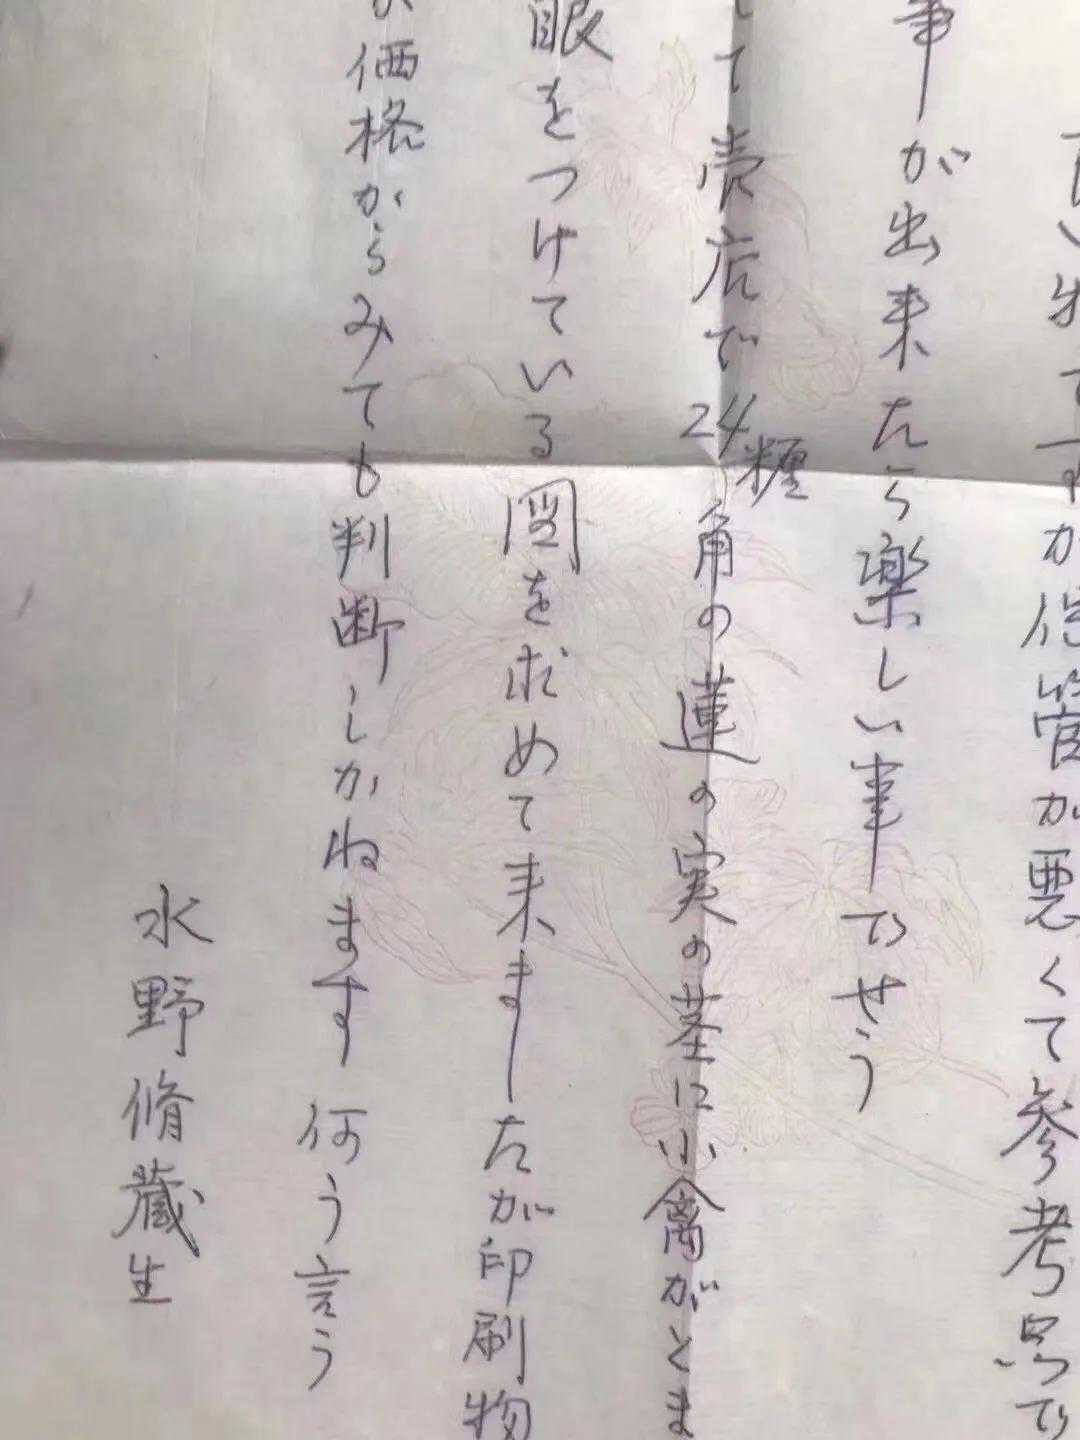 良い物ですが保管が悪くて参考品で
事が出来たら楽しい事でせう
して売店で24糎角の蓮の実の茎に小禽がとま
眼をつけている図を求めて来ましたが印刷物
価格からみても判断しかねます 何う言う
水野脩蔵生